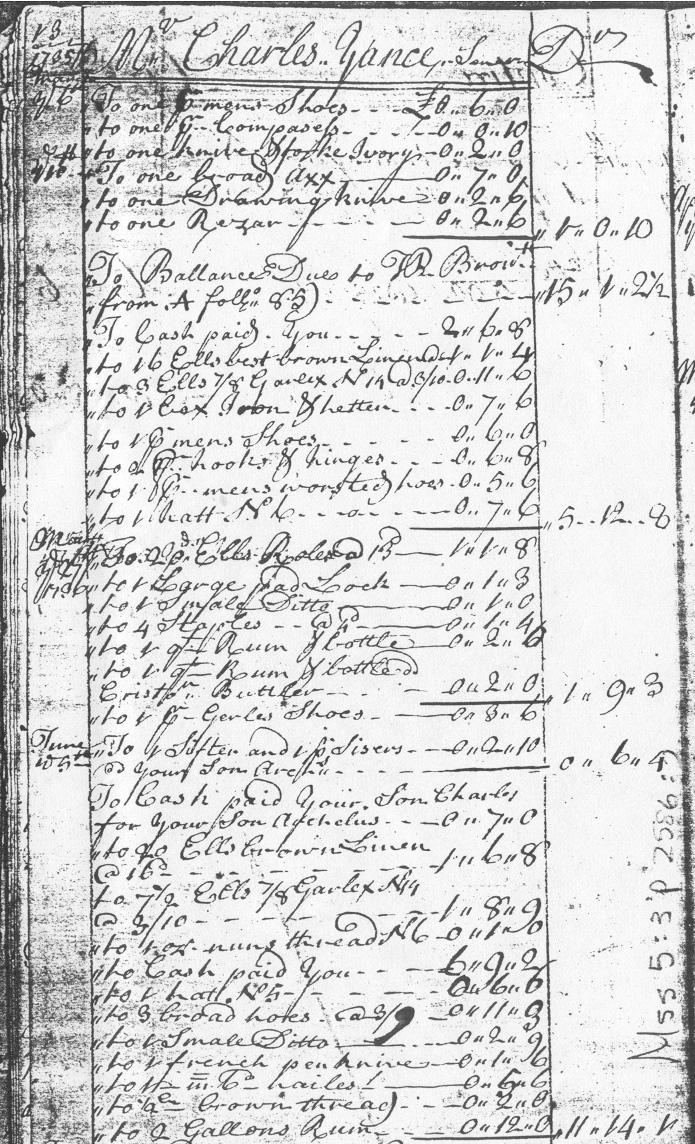 Mr. Charles Yance Senior Dr
To one pr mens Shoes £0,,6,,0
to one pr Compases 0,,0,,10
to one knive & forke Ivory 0,,2,,0
To one broad Axx 0,,7,,0
to one Drawing knive 0,,2,,6
to one Rezar 0,,2,,6 1,,0,,10
To Ballance Due to Brown
from A follo. 85) 15,,1,,2½
To Cash paid You 2,,6,,8
to 16 Ells best brown Linen 1,,1,,4
to 3 Ells 7/8 Garlex N 14 @ 3/10 0,,11,,6
to 1 box Iron & hetters 0,,7,,6
to 1 pr mens Shoes 0,,6,,0
to 2 pr hooks & hinges 0,,6,,8
to 1 pr mens worsted hoes 0,,5,,6
to 1 hatt N 6 0,,7,,6 5,,12,,8
To 20 Ells Roles @ 13 1,,1,,8
to 1 Large pad Lock 0,,1,,3
to 1 Smale Ditto 0,,1,,0
to 4 Staples @ 4d 0,,1,,4
to 1 qt Rum & bottle 0,,2,,0
to 1 qt Rum & bottle @
Cristor Buttler 0,,2,,0 1,,9,,3
to 1 pr Gerles Shoes 0,,3,,6
June
To 1 Sifter and 1 pr Sisers 0,,2,,10
@ your Son Arch 0,,6,,4
To Cash paid Your Son Charles
for Your Son Achelus 0,,7,,0
to 20 Ells brown Linen
@ 16d 1,,6,,8
to 7½ Ells 7/8 Garlex N 14
@ 3/10 1,,8,,9
to 1 oz nuns thread N 6 0,,1,,0
to Cash paid You 6,,9,,2
to 1 hatt No 5 0,,6,,6
to 3 broad hoes @ 3/9 0,,11,,3
to 1 Smale Ditto 0,,2,,9
to 1 french penknive 0,,1,,6
to 1 m 6d nailes 0,,6,,6
to brown thread 0,,2,,0
to 2 Gallons Rum 0,,12,,0 11,,14,,1
Mss 5:3 P 2586: